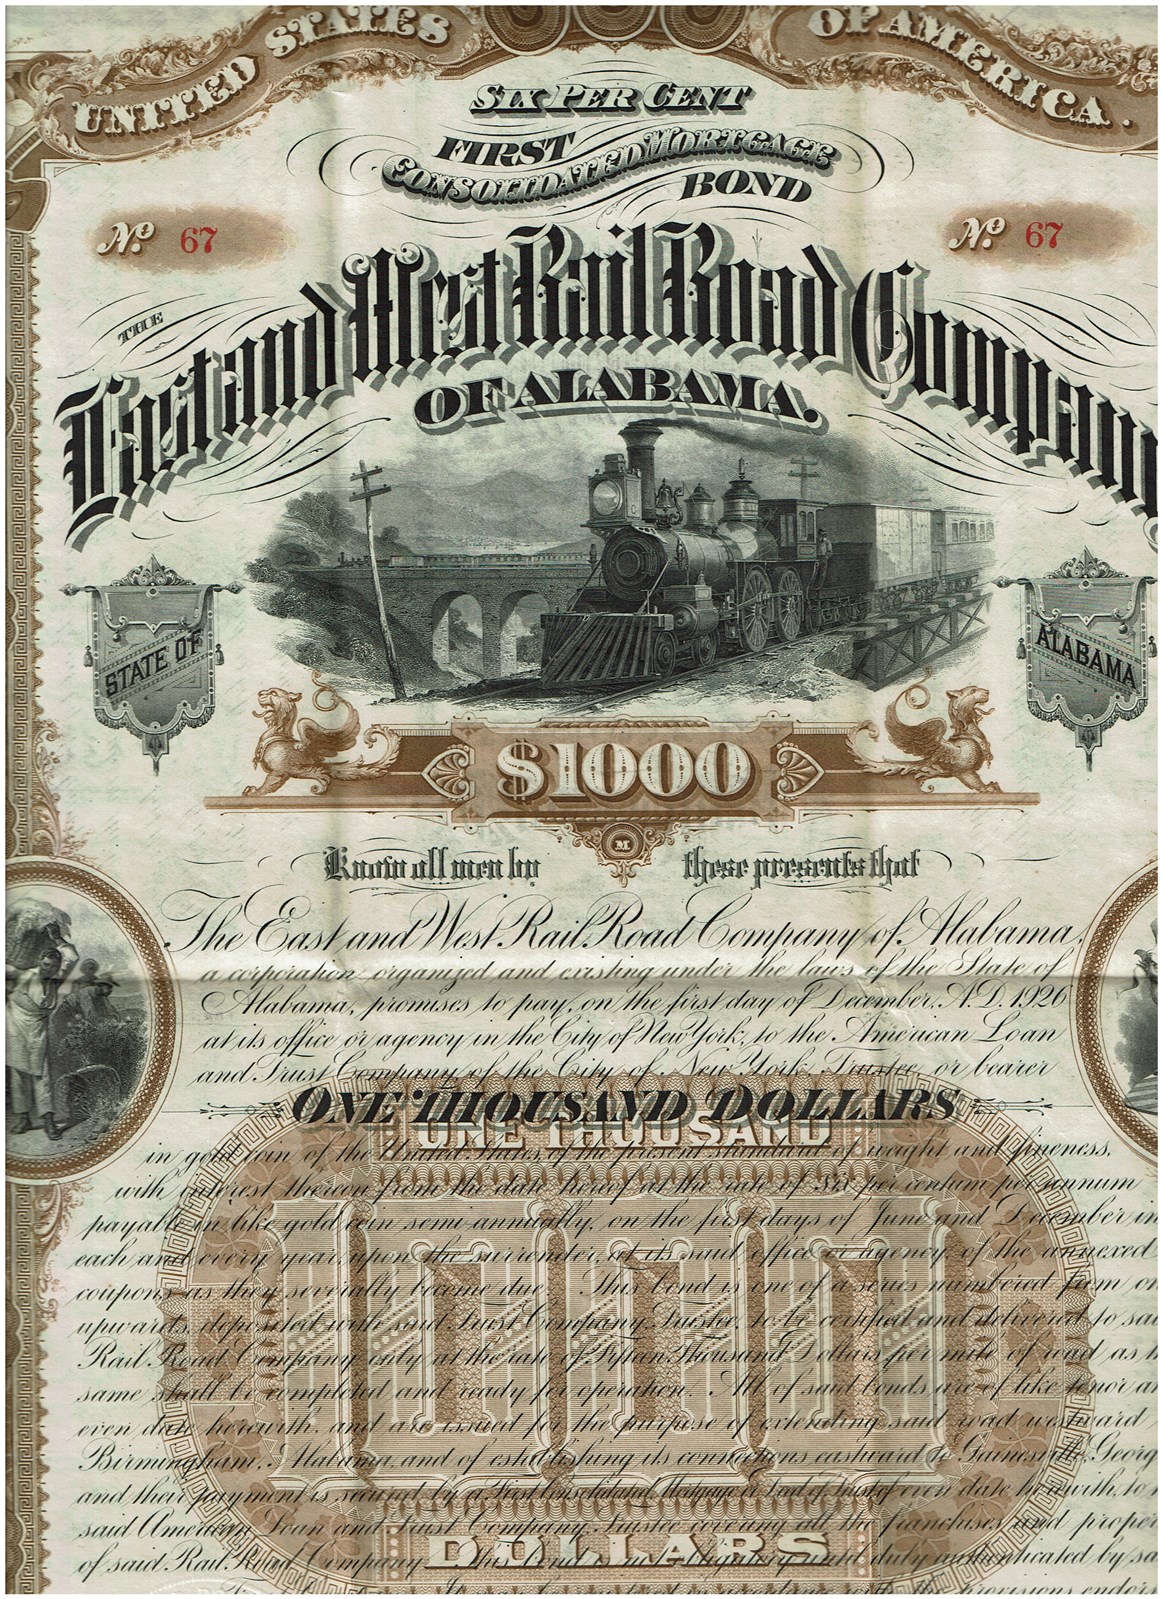 UNITED STATES OF AMERICA.
SIX PER CENT
FIRST
CONSOLIDATED MORTGAGE
BOND
No. 67 No. 67
THE
East and West Rail Road Company
OF ALABAMA.
STATE OF ALABAMA
$1000
M
Know all men by these presents that
The East and West Rail Road Company of Alabama,
a corporation organized and existing under the laws of the State of
Alabama, promises to pay, on the first day of December, A.D. 1926
at its office or agency in the City of New York, to the American Loan
and Trust Company of the City of New York, Trustee, or bearer
ONE THOUSAND DOLLARS
ONE THOUSAND
in gold coin of the United States, of the present standard of weight and fineness,
with interest thereon from the date hereof at the rate of six per centum per annum
payable in like gold coin semi-annually, on the first days of June and December in
each and every year, upon the surrender, at its said office or agency, of the annexed
coupons as they severally become due. This bond is one of a series numbered from
upwards, deposited with said Trust Company, Trustee, to be certified and delivered to
Rail Road Company only at the rate of Fifteen Thousand Dollars per mile of road as
same shall be completed and ready for operation. All of said bonds are of like tenor
even date herewith, and are issued for the purpose of extending said road westward
Birmingham, Alabama, and of establishing its connections eastward to Gainesville,
and their payment is secured by a First Consolidated Mortgage or Deed of Trust of even date herewith, to
said American Loan and Trust Company, Trustee covering all the franchises and
of said Rail Road Company. This bond duly authenticated by
1000
DOLLARS
provisions